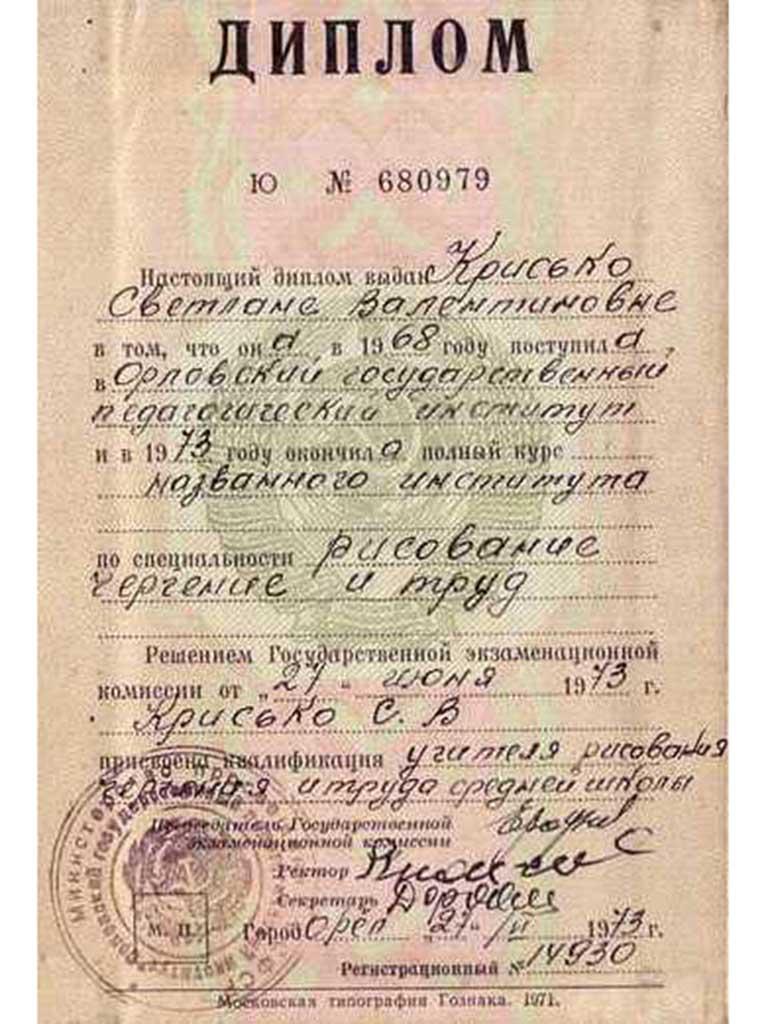 ДИПЛОМ
Ю № 680979
Настоящий диплом выдан Крисько
Светлане Валентиновне
в том, что он а в 1968 году поступил а
в Орловский государственный
педагогический институт
и в 1973 году окончил а полный курс
названного института
по специальности рисование
черчение и труд
Решением Государственной экзаменационной
комиссии от „27" июня 1973 г.
Крисько С. В
присвоена квалификация учителя рисования
черчения и труда средней школы
Председатель Государственной
экзаменационной комиссии
Ректор
Секретарь
М. П.
Город Орёл „27" 1973 г.
Регистрационный № 14930
Московская типография Гознака. 1971.